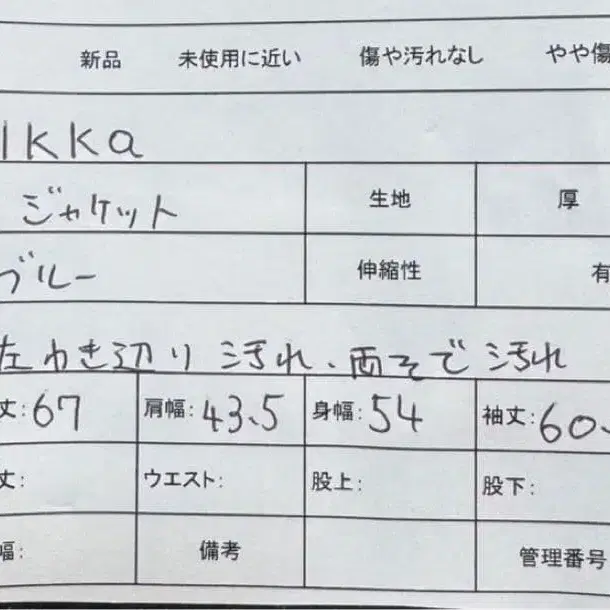 新品 未使用に近い 傷や汚れなし やや傷
ikka
ジャケット 生地 厚
ブルー 伸縮性 有
左わき辺り汚れ、両そで汚れ
丈:67 肩幅:43.5 身幅:54 袖丈:60.
丈: ウエスト: 股上: 股下:
幅: 備考 管理番号